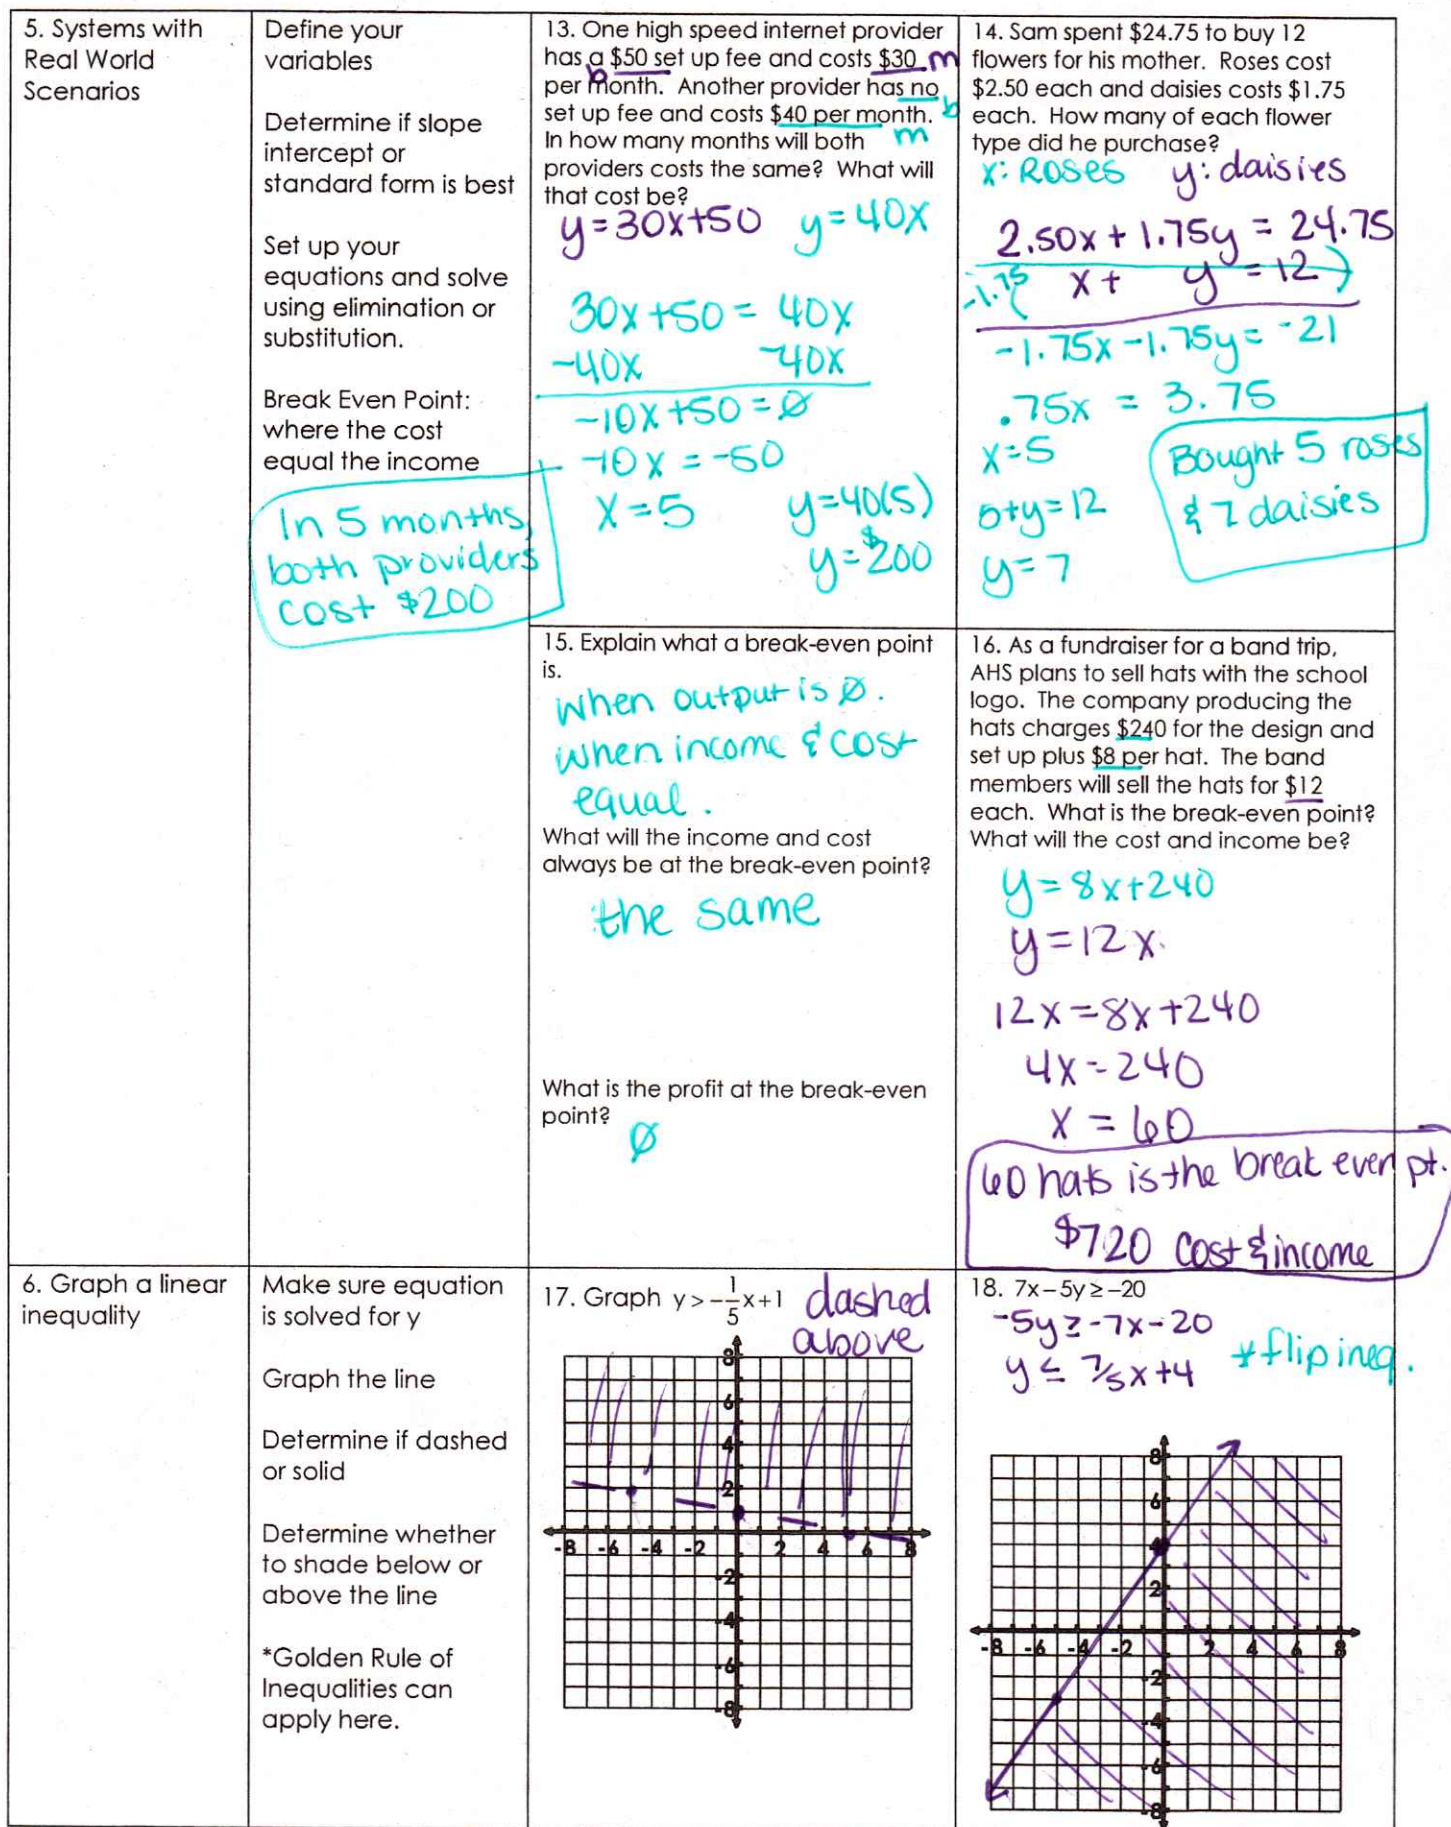 5. Systems with
Real World
Scenarios
Define your
variables
Determine if slope
intercept or
standard form is best
Set up your
equations and solve
using elimination or
substitution.
Break Even Point:
where the cost
equal the income
In 5 months,
both providers
cost $200
13. One high speed internet provider
has a $50 set up fee and costs $30 m
b
per month. Another provider has no
set up fee and costs $40 per month. b
In how many months will both m
providers costs the same? What will
that cost be?
y=30x+50 y=40x
30x+50 = 40x
-40x -40x
-10x+50=Ø
-10x = -50
x=5 y=40(5)
y=$200
14. Sam spent $24.75 to buy 12
flowers for his mother. Roses cost
$2.50 each and daisies costs $1.75
each. How many of each flower
type did he purchase?
x: Roses y: daisies
2.50x + 1.75y = 24.75
-1.75( x + y = 12)
-1.75x -1.75y = -21
.75x = 3.75
x=5
5+y=12
y=7
Bought 5 roses
& 7 daisies
15. Explain what a break-even point
is.
When output is Ø.
When income & cost
equal.
What will the income and cost
always be at the break-even point?
the same
What is the profit at the break-even
point?
Ø
16. As a fundraiser for a band trip,
AHS plans to sell hats with the school
logo. The company producing the
hats charges $240 for the design and
set up plus $8 per hat. The band
members will sell the hats for $12
each. What is the break-even point?
What will the cost and income be?
y=8x+240
y=12x
12x=8x+240
4x=240
x=60
60 hats is the break even pt.
$720 cost & income
6. Graph a linear
inequality
Make sure equation
is solved for y
Graph the line
Determine if dashed
or solid
Determine whether
to shade below or
above the line
*Golden Rule of
Inequalities can
apply here.
17. Graph y > -1/5x+1 dashed
above
8
6
4
2
-8 -6 -4 -2 2 4 6 8
-2
-4
-6
-8
18. 7x-5y≥-20
-5y≥-7x-20
y≤7/5x+4 *flip ineq.
8
6
4
2
-8 -6 -4 -2 2 4 6 8
-2
-4
-6
-8